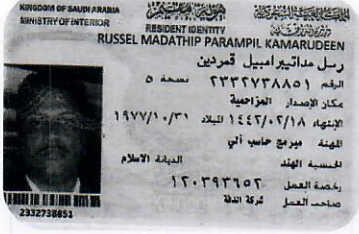 KINGDOM OF SAUDI ARABIA
MINISTRY OF INTERIOR
RESIDENT IDENTITY
RUSSEL MADATHIP PARAMPIL KAMARUDEEN
رسل مداتيبرامبيل قمردين
الرقم ٢٣٣٢٧٣٨٨٥١ نسخة ٥
مكان الإصدار المزاحمية
الإنتهاء ١٤٤٢/٠٢/١٨ الميلاد ١٩٧٧/١٠/٣١
المهنة مبرمج حاسب آلي
الجنسية الهند الديانة الاسلام
رخصة العمل ١٢٠٣٩٣٦٥٢
صاحب العمل شركة
2332738851